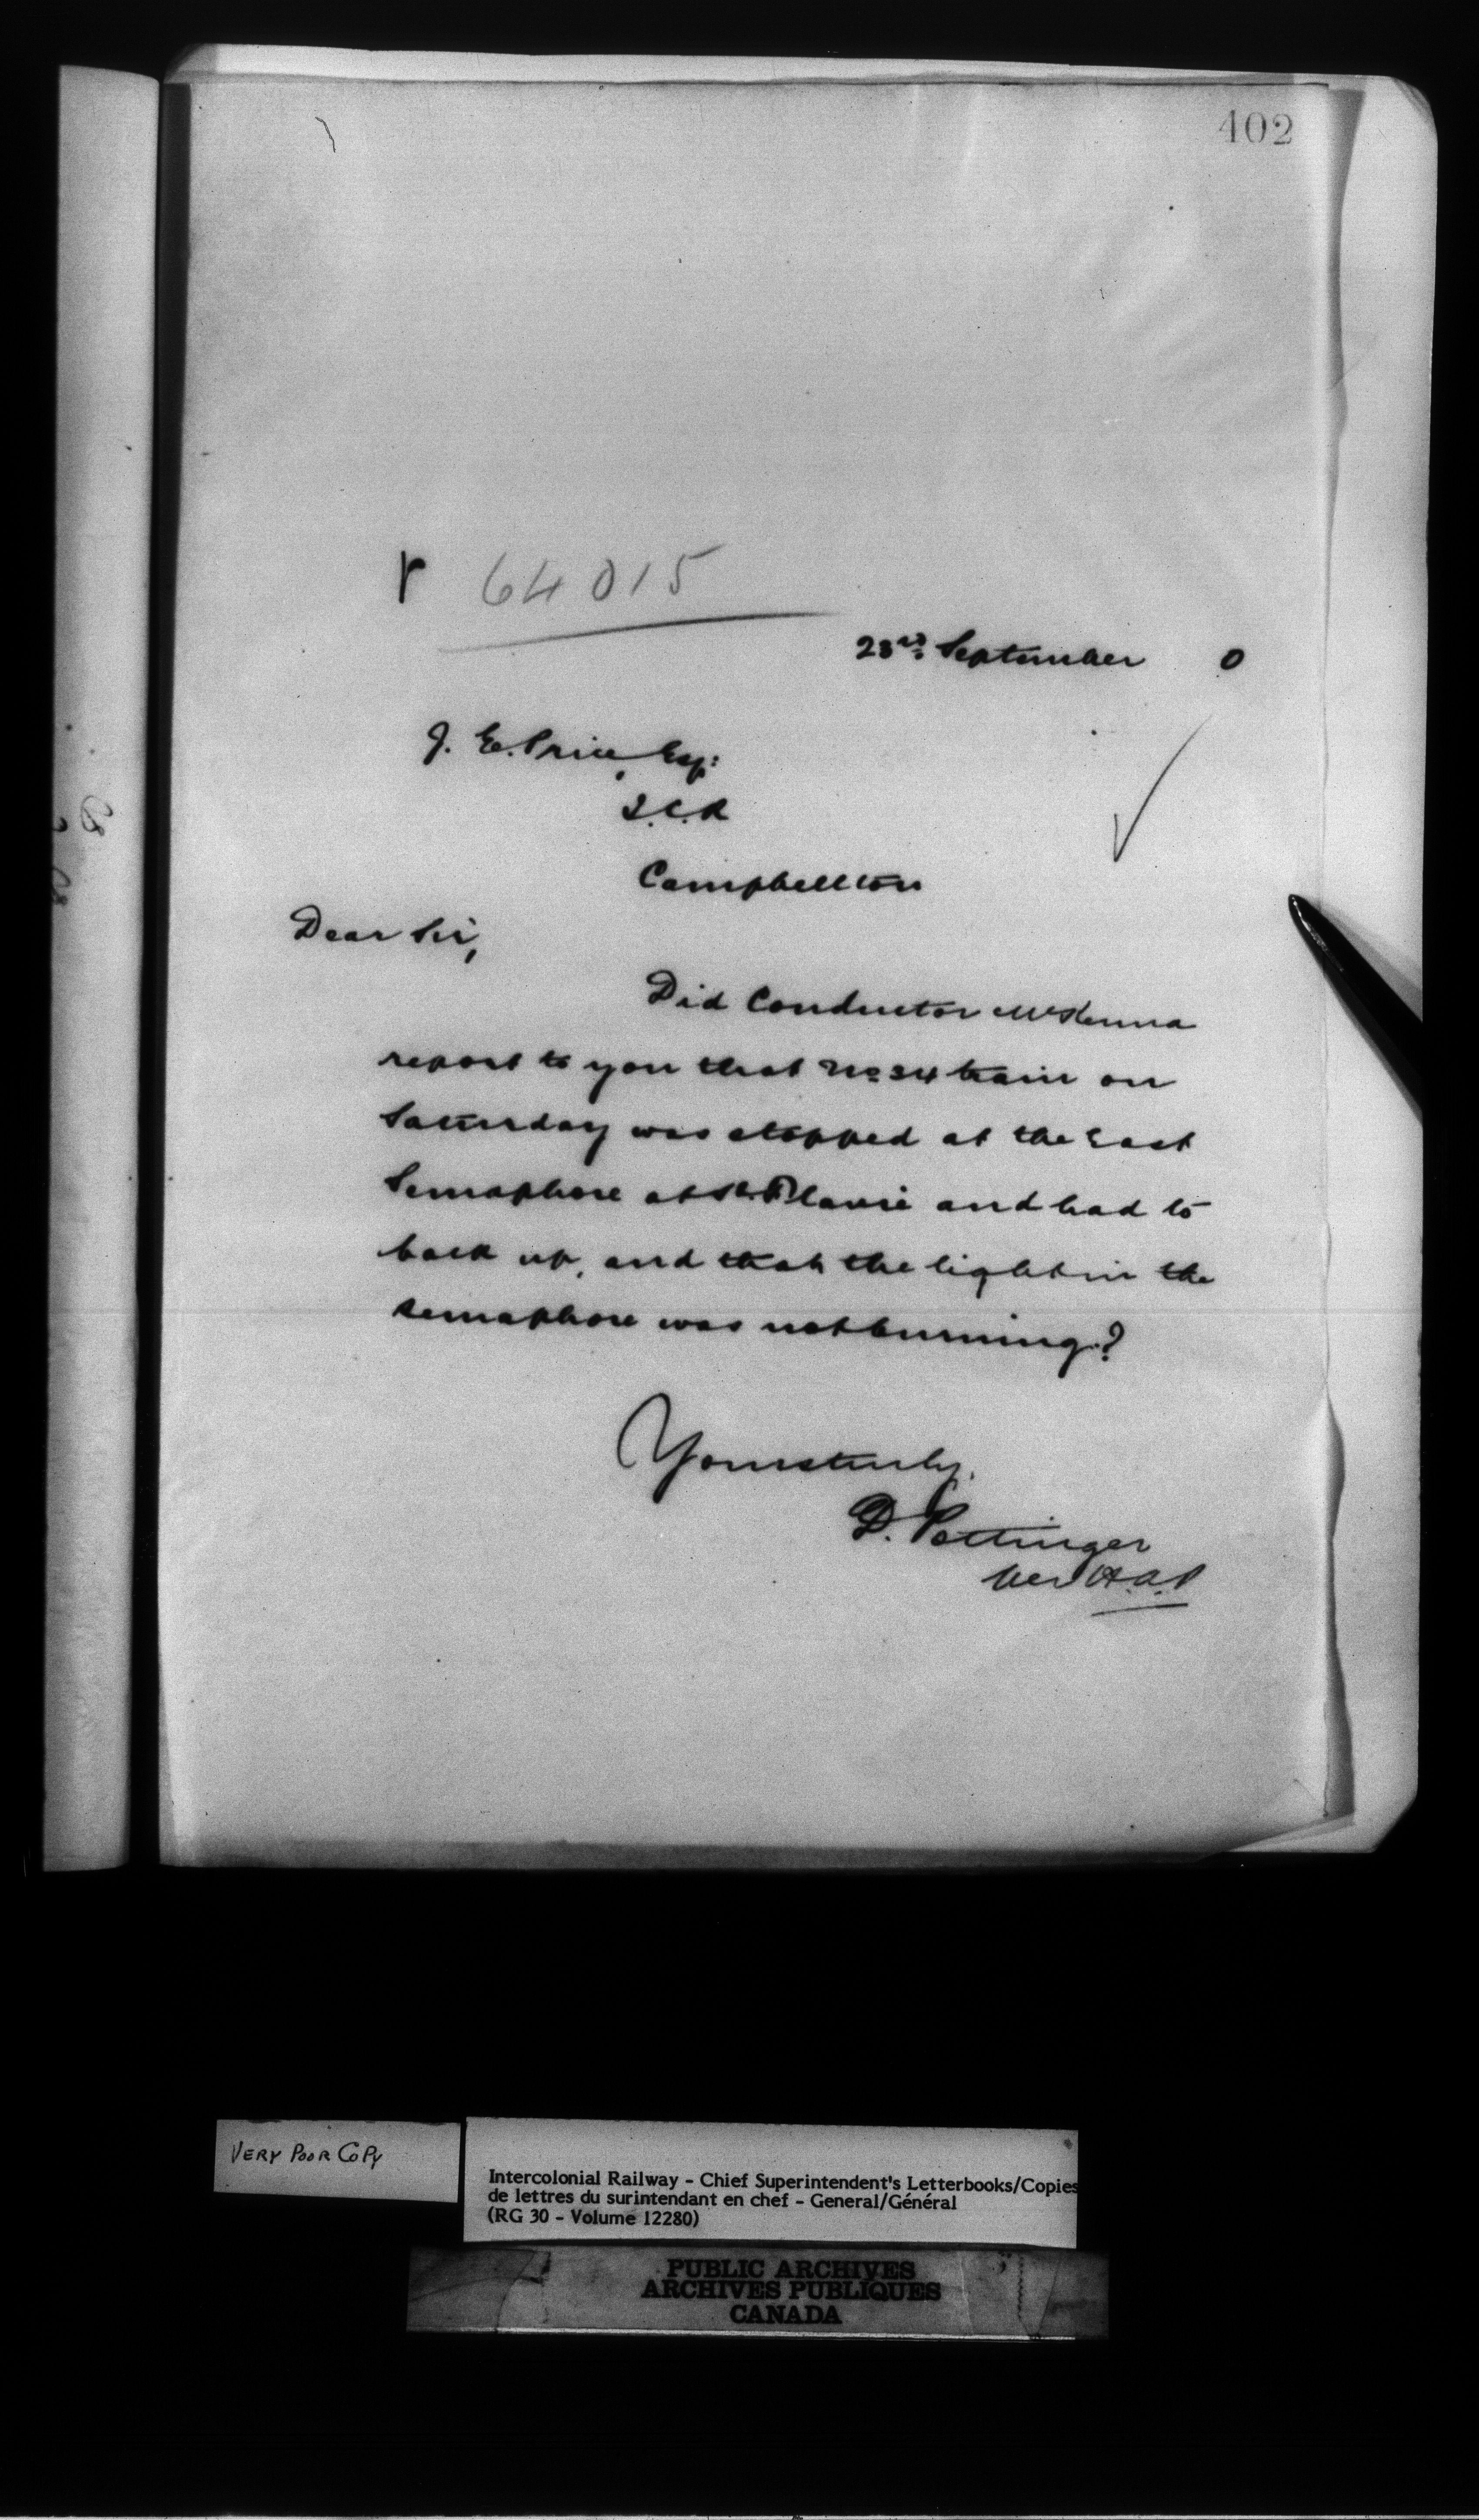 402
r 64015
23rd September 0
J. E. Price, Esq:
I.C.R
Campbellton
Dear Sir,
Did Conductor McKenna
report to you that No 34 train on
Saturday was stopped at the East
Semaphore at St. Flavie and had to
back up, and that the light in the
semaphore was not burning?
Yours truly,
D. Pottinger
Per H.A.P
VERY POOR COPY
Intercolonial Railway - Chief Superintendent's Letterbooks/Copies
de lettres du surintendant en chef - General/Général
(RG 30 - Volume 12280)
PUBLIC ARCHIVES
ARCHIVES PUBLIQUES
CANADA